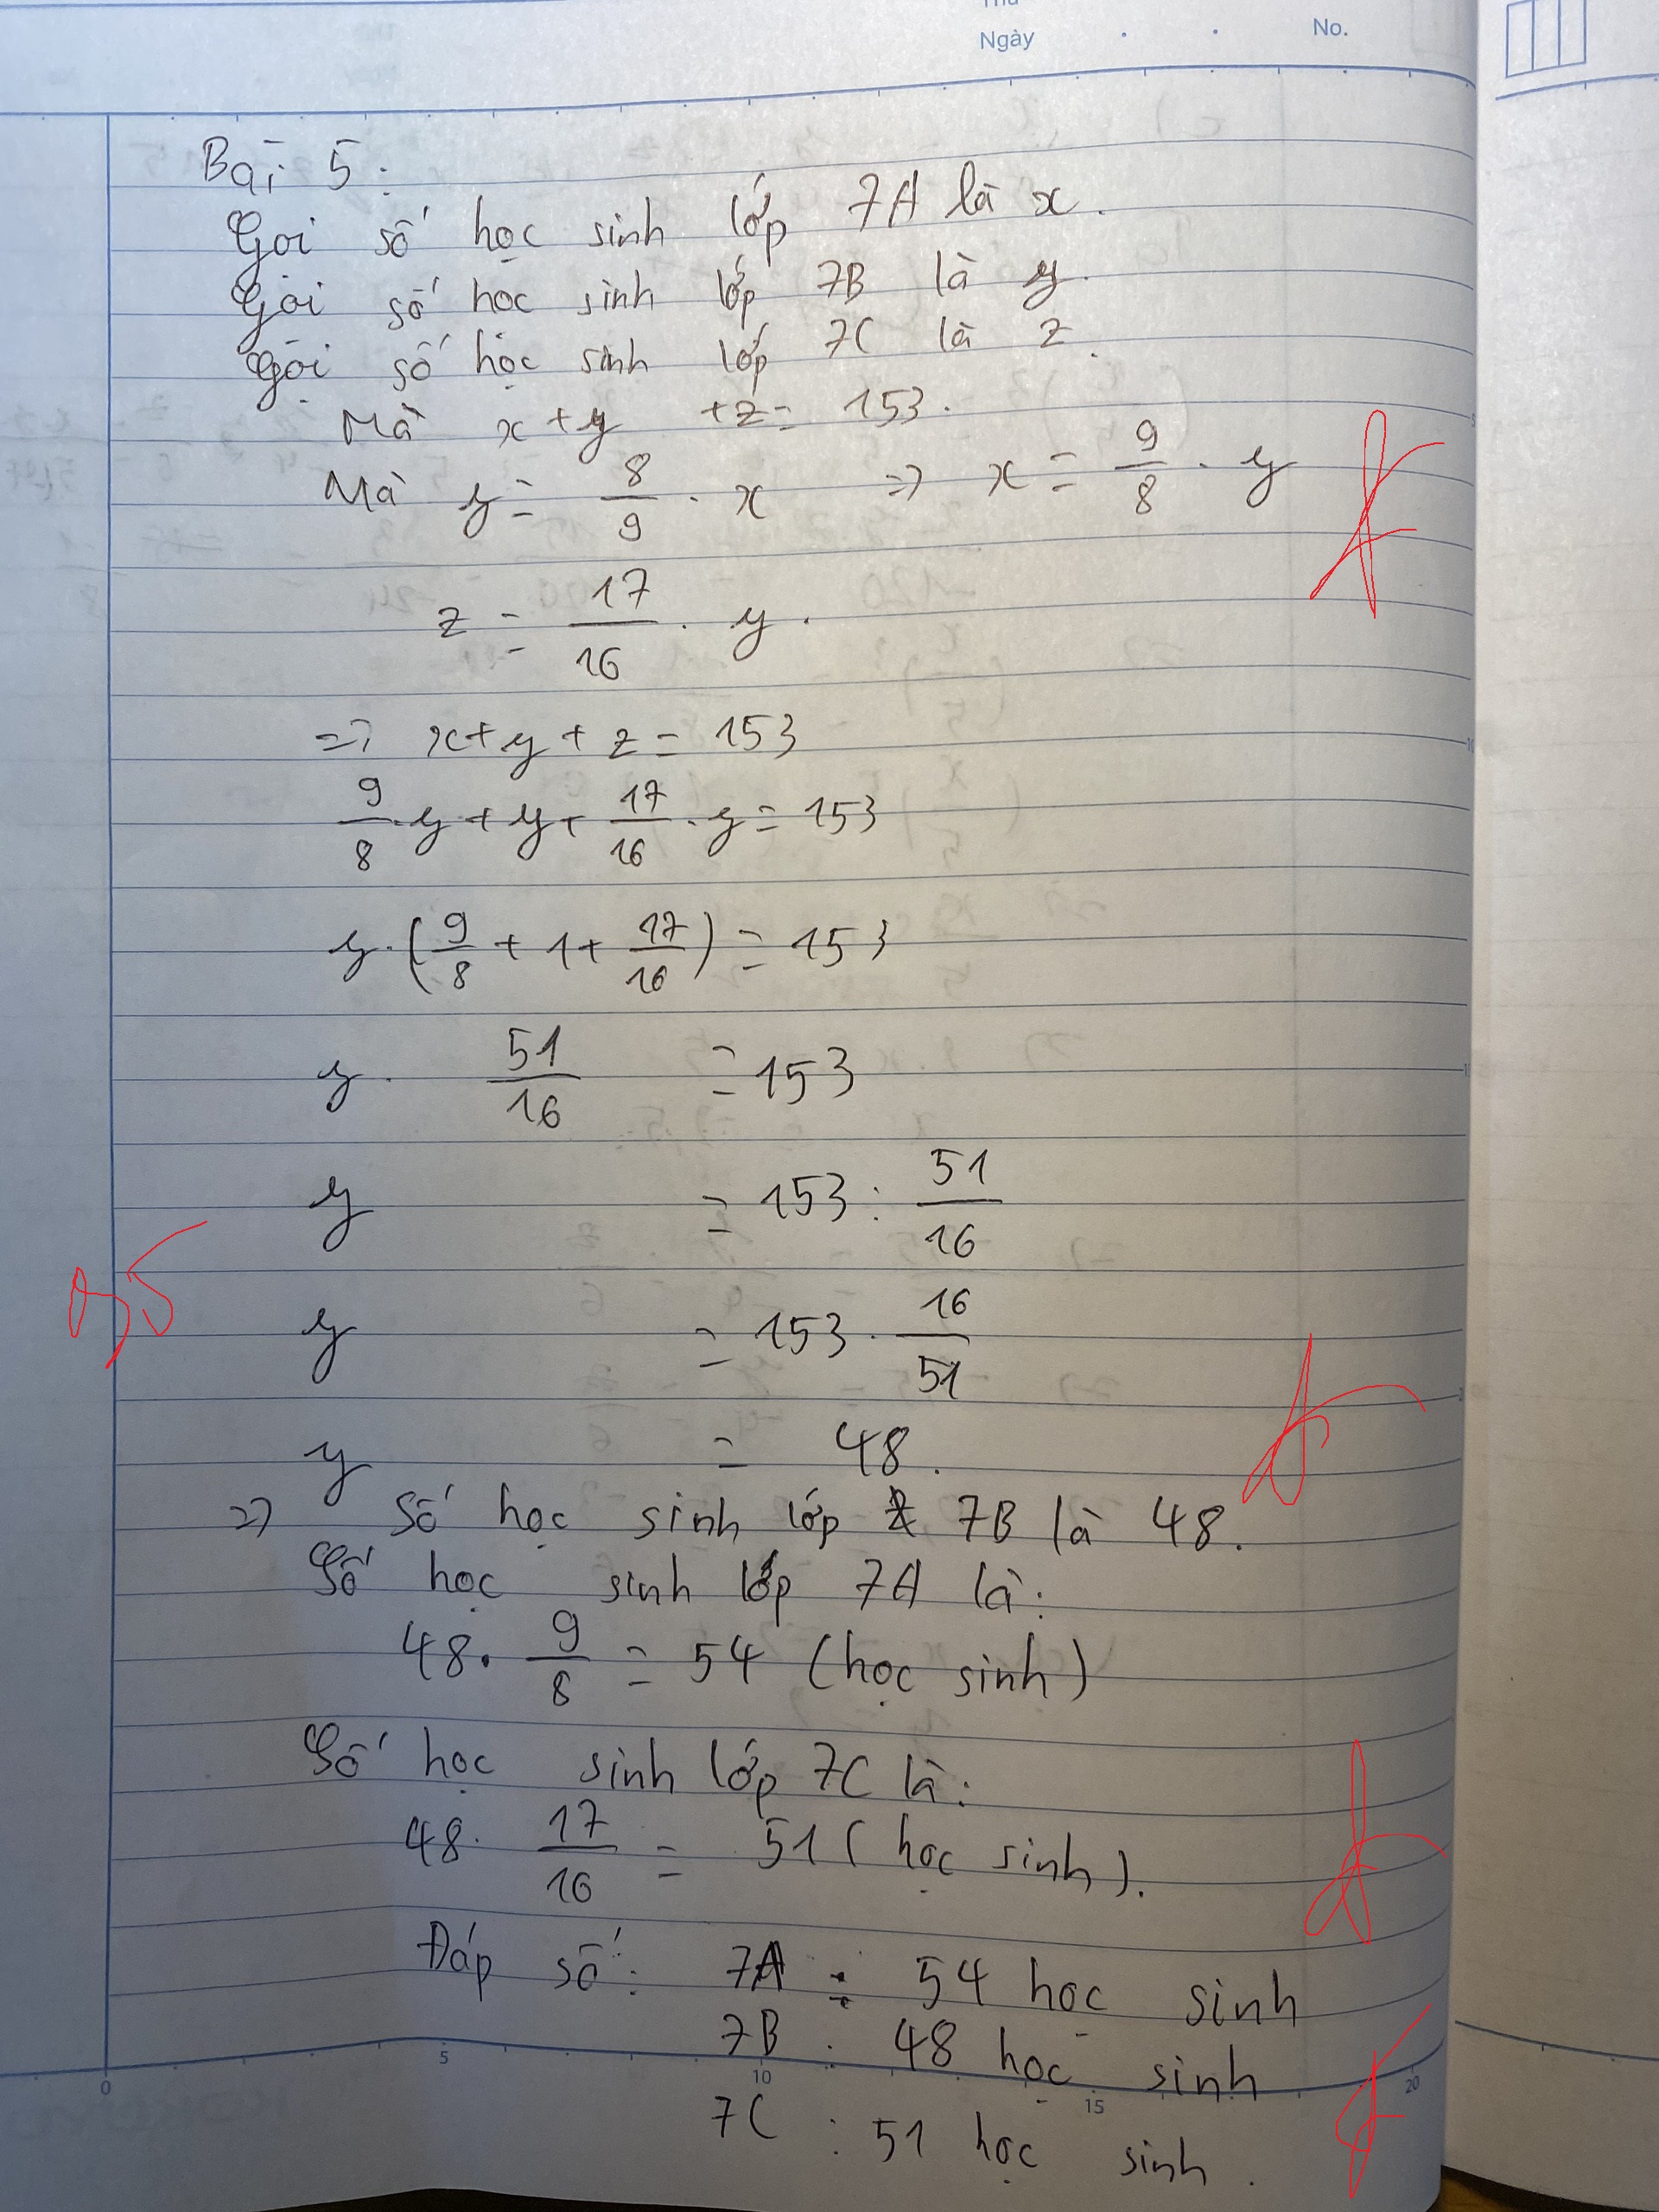 Thứ
Ngày . . No.
Bài 5:
Gọi số học sinh lớp 7A là x.
Gọi số học sinh lớp 7B là y.
Gọi số học sinh lớp 7C là z.
Mà x + y + z = 153.
Mà y = 8/9 . x => x = 9/8 . y
z = 17/16 . y.
=> x + y + z = 153
9/8 . y + y + 17/16 . y = 153
y . (9/8 + 1 + 17/16) = 153
y . 51/16 = 153
y = 153 : 51/16
0,5
y = 153 . 16/51
y = 48.
=> Số học sinh lớp 7B là 48.
Số học sinh lớp 7A là:
48 . 9/8 = 54 (học sinh)
Số học sinh lớp 7C là:
48 . 17/16 = 51 (học sinh).
Đáp số: 7A : 54 học sinh
7B : 48 học sinh
7C : 51 học sinh.
0 5 10 15 20